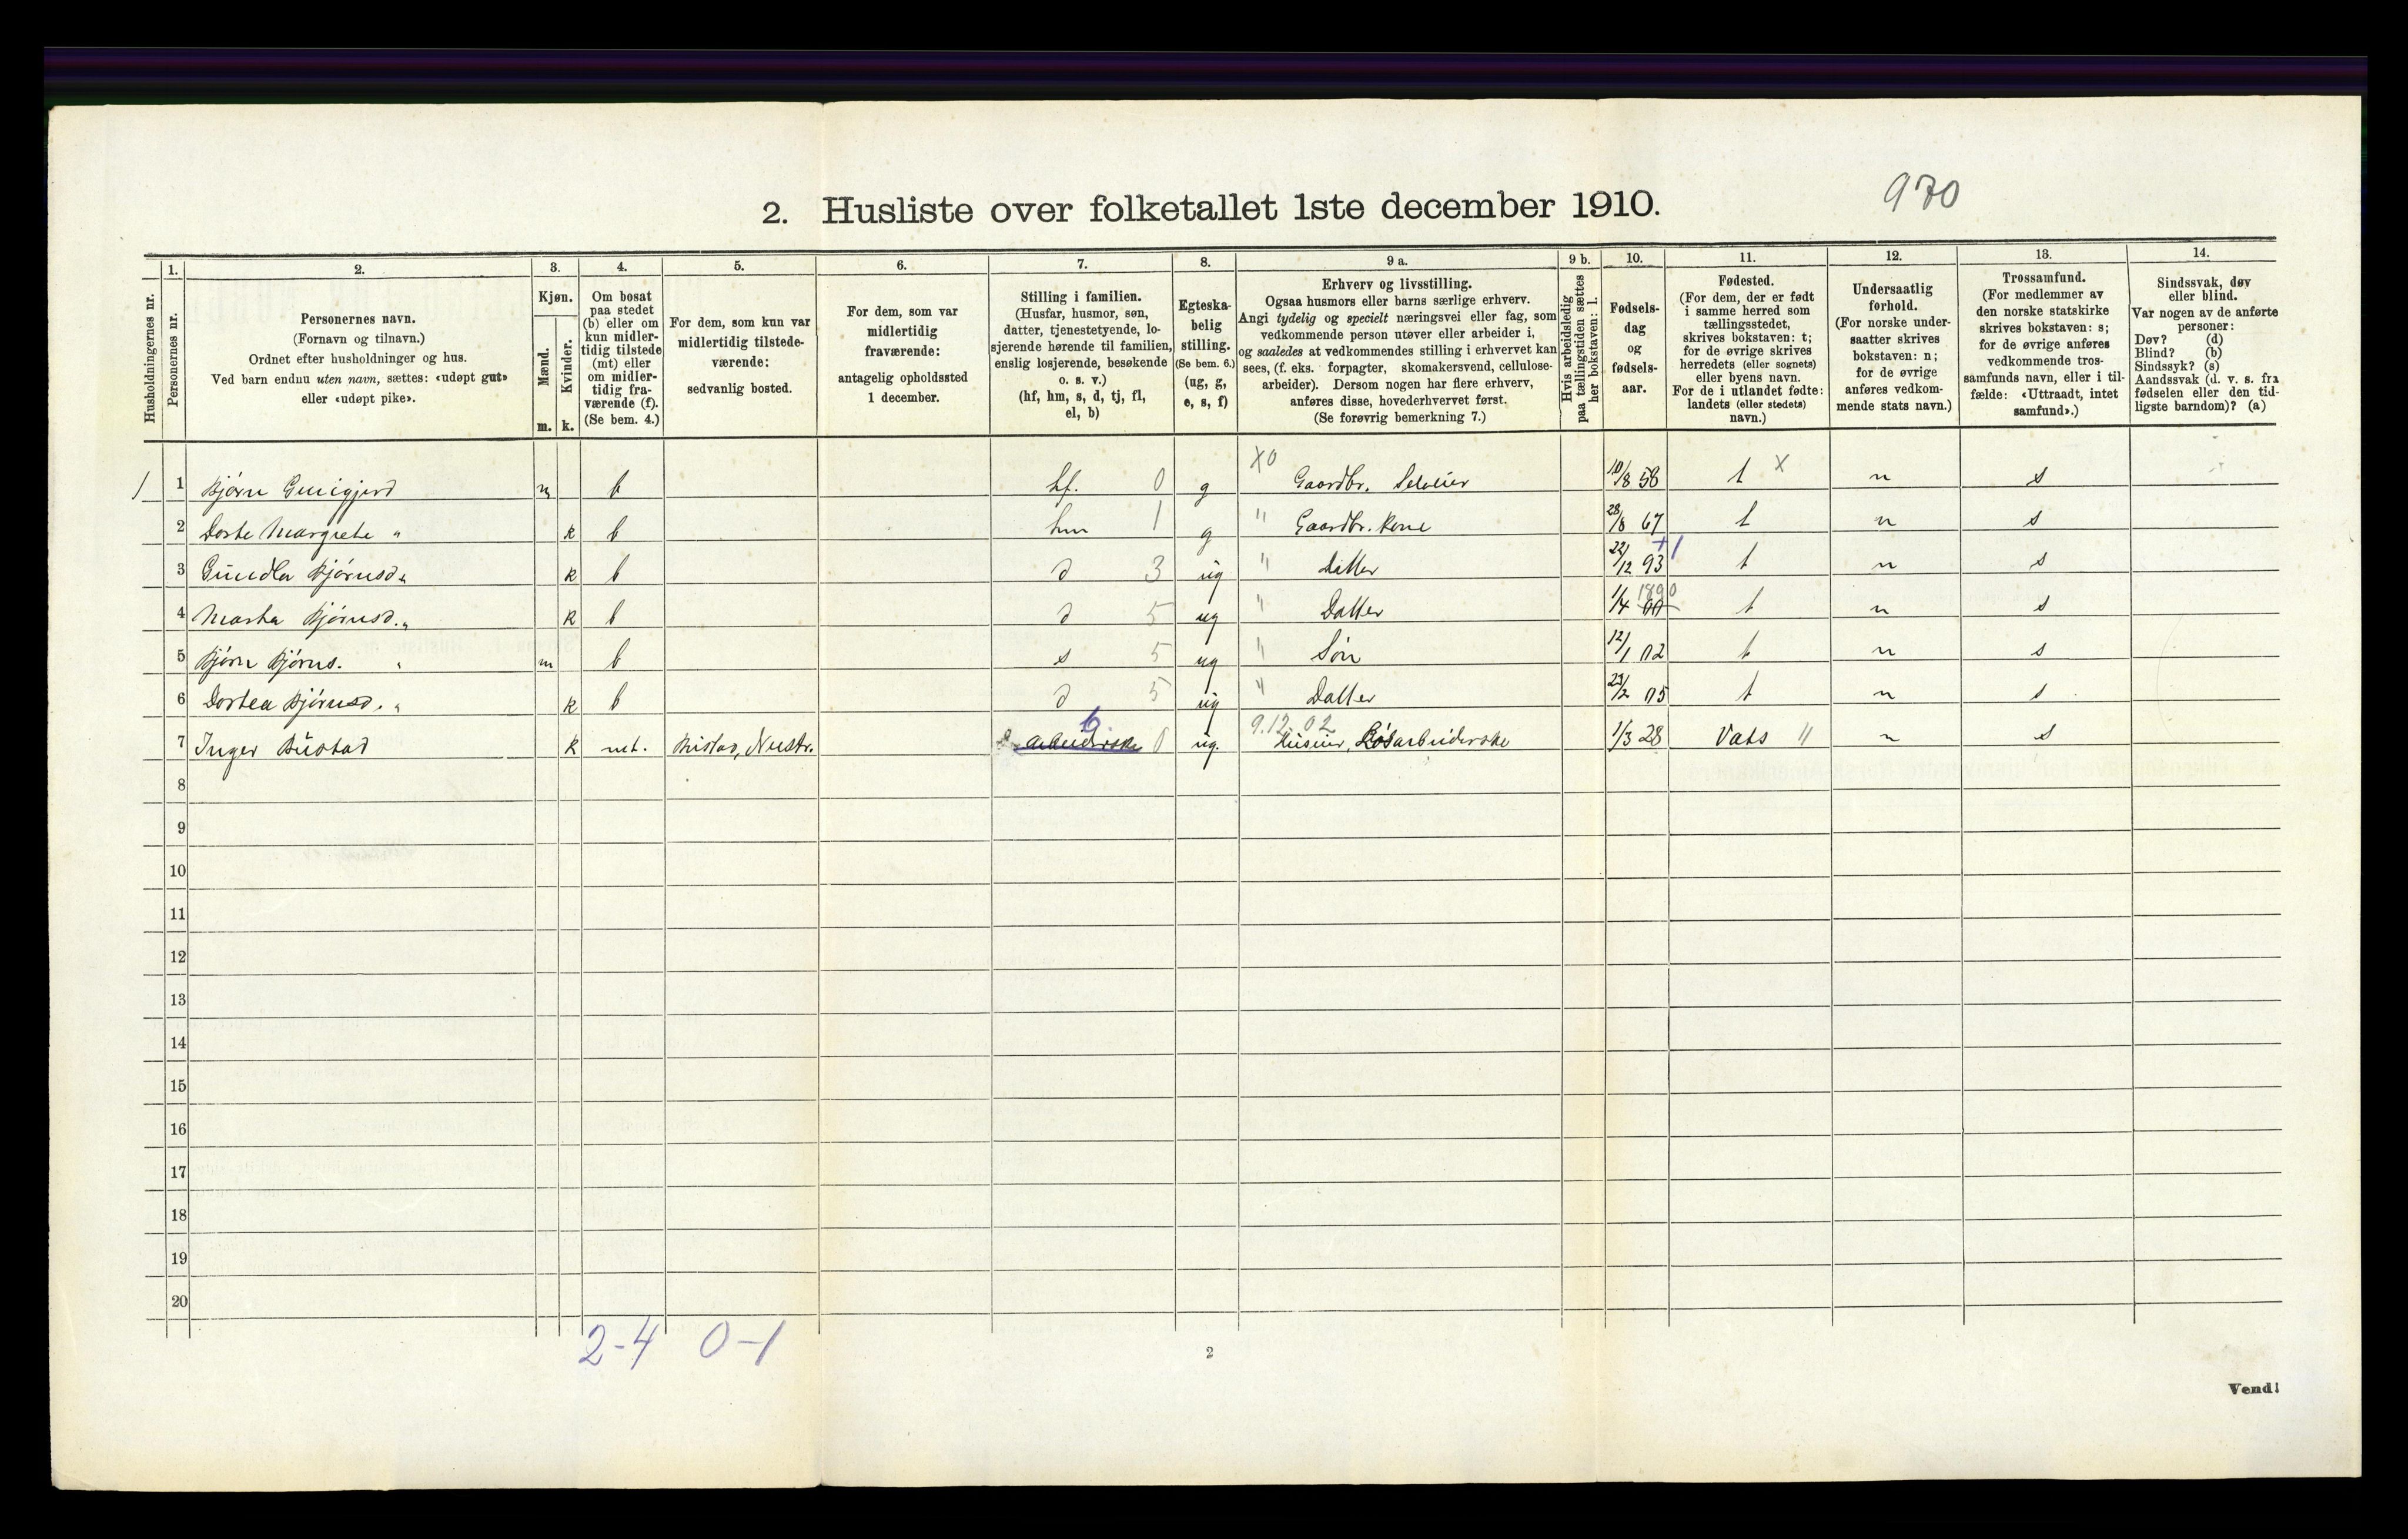 970
2. Husliste over folketallet 1ste december 1910.
Husholdningernes nr.
1. Personernes nr.
2. Personernes navn.
(Fornavn og tilnavn.)
Ordnet efter husholdninger og hus.
Ved barn endnu uten navn, sættes: «udøpt gut»
eller «udøpt pike».
3. Kjøn.
Mænd. m.
Kvinder. k.
4. Om bosat
paa stedet
(b) eller om
kun midler-
tidig tilstede
(mt) eller
om midler-
tidig fra-
værende (f).
(Se bem. 4.)
5. For dem, som kun var
midlertidig tilstede-
værende:
sedvanlig bosted.
6. For dem, som var
midlertidig
fraværende:
antagelig opholdssted
1 december.
7. Stilling i familien.
(Husfar, husmor, søn,
datter, tjenestetyende, lo-
sjerende hørende til familien,
enslig losjerende, besøkende
o. s. v.)
(hf, hm, s, d, tj, fl,
el, b)
8. Egteska-
belig
stilling.
(Se bem. 6.)
(ug, g,
e, s, f)
9 a. Erhverv og livsstilling.
Ogsaa husmors eller barns særlige erhverv.
Angi tydelig og specielt næringsvei eller fag, som
vedkommende person utøver eller arbeider i,
og saaledes at vedkommendes stilling i erhvervet kan
sees, (f. eks. forpagter, skomakersvend, cellulose-
arbeider). Dersom nogen har flere erhverv,
anføres disse, hovederhvervet først.
(Se forøvrig bemerkning 7.)
9 b. Hvis arbeidsledig
paa tællingstiden sættes
her bokstaven: l.
10. Fødsels-
dag
og
fødsels-
aar.
11. Fødested.
(For dem, der er født
i samme herred som
tællingsstedet,
skrives bokstaven: t;
for de øvrige skrives
herredets (eller sognets)
eller byens navn.
For de i utlandet fødte:
landets (eller stedets)
navn.)
12. Undersaatlig
forhold.
(For norske under-
saatter skrives
bokstaven: n;
for de øvrige
anføres vedkom-
mende stats navn.)
13. Trossamfund.
(For medlemmer av
den norske statskirke
skrives bokstaven: s;
for de øvrige anføres
vedkommende tros-
samfunds navn, eller i til-
fælde: «Uttraadt, intet
samfund».)
14. Sindssvak, døv
eller blind.
Var nogen av de anførte
personer:
Døv? (d)
Blind? (b)
Sindssyk? (s)
Aandssvak (d. v. s. fra
fødselen eller den tid-
ligste barndom)? (a)
X0 X
1 1 Bjørn m b hf. 0 g Gaardbr. Seleier 10/8 58 t n s
2 Dorte Margrete " k b hm 1 g " Gaardbr. Kone 28/8 67 t n s
3 Gundla Bjørnsd. " k b d 3 ug " Datter 22/12 93 +1 t n s
4 Marta Bjørnsd. " k b d 5 ug " Datter 1/4 00 1890 t n s
5 Bjørn Bjørns. " m b s 5 ug " Søn 12/1 02 t n s
6 Dortea Bjørnsd. " k b d 5 ug " Datter 23/2 05 t n s
b 9.12.02
7 Inger Bustad k mt. Bustad, arbeiderske 0 ug. Huseier, Løsarbeiderske 1/3 28 Vats " n s
8
9
10
11
12
13
14
15
16
17
18
19
20
2-4 0-1
2
Vend!